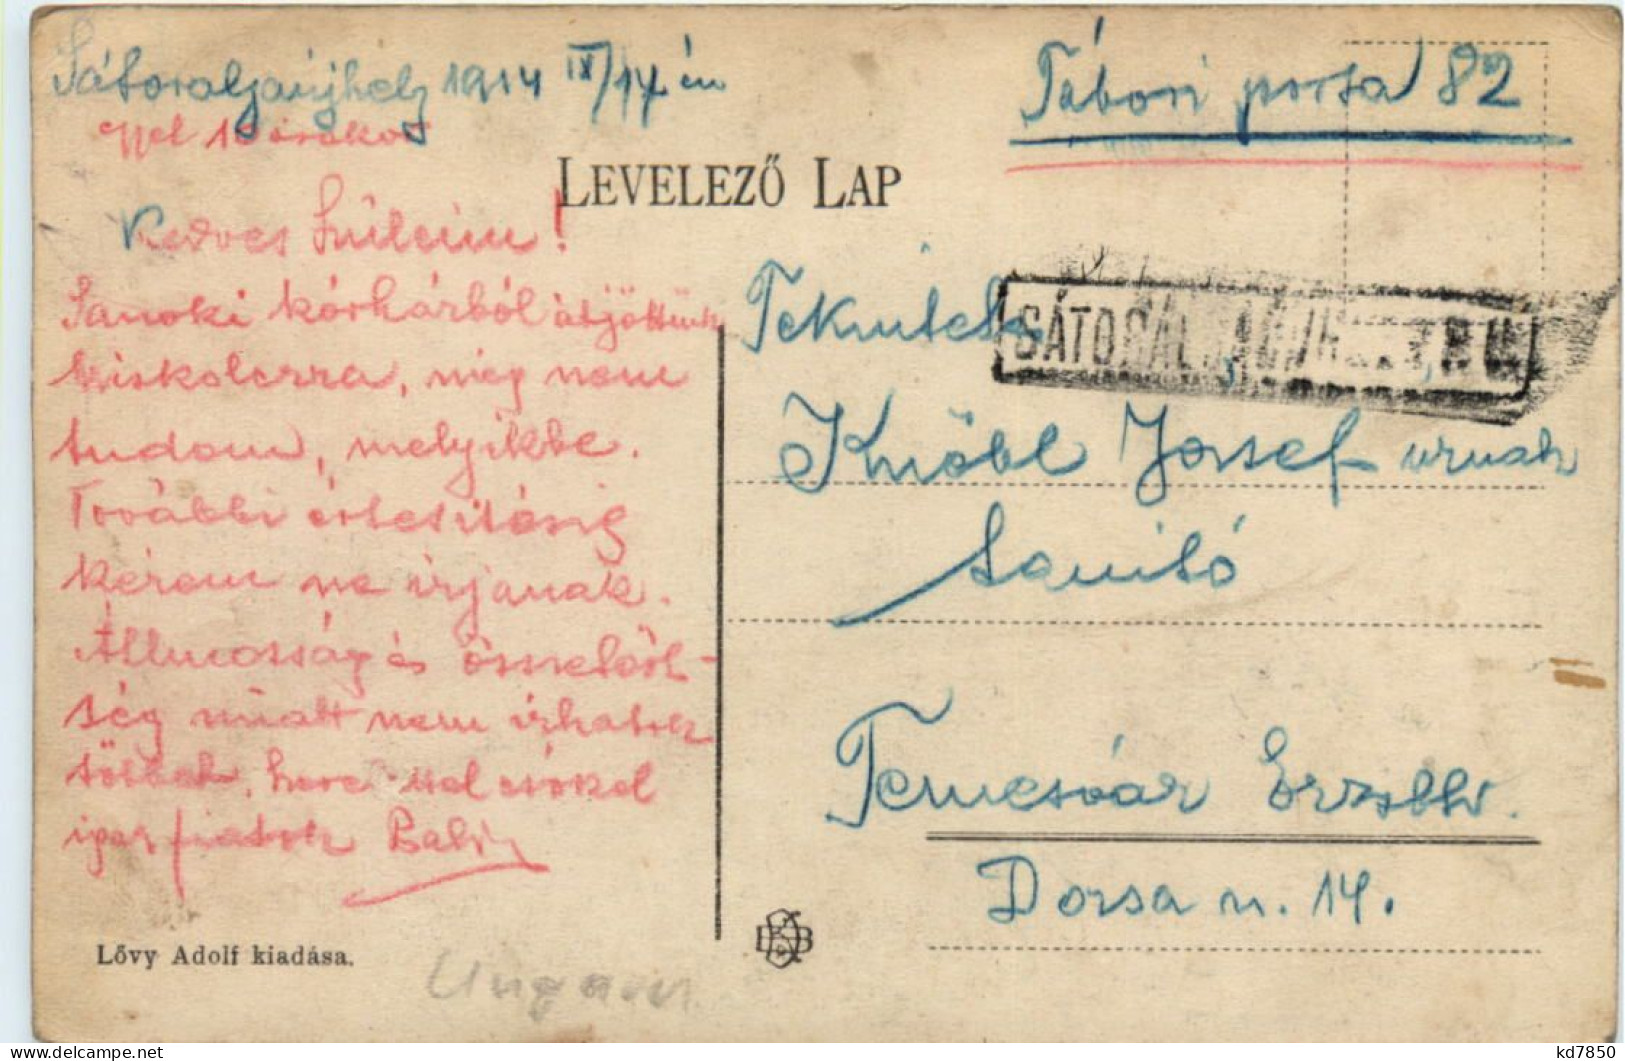 Sátoraljaujhely 1914 IX/14 én
éjjel 1 órakor
Tábori posta 82
LEVELEZŐ LAP
Kedves Szüleim!
Sanoki kórházból átjöttünk
miskolcra, még nem
tudom, melyikbe.
További értesitésig
kérem ne irjanak.
Álmosság és össsetört-
ség miatt nem irhatok
többet, kézcsókkal csókol
igaz fiatok
Tekintetes
SÁTORAL
Knöbl József urnak
tanitó
Temesvár Erzsbtv.
Dorsa u. 14.
Lővy Adolf kiadása.
Ungarn
kd7850